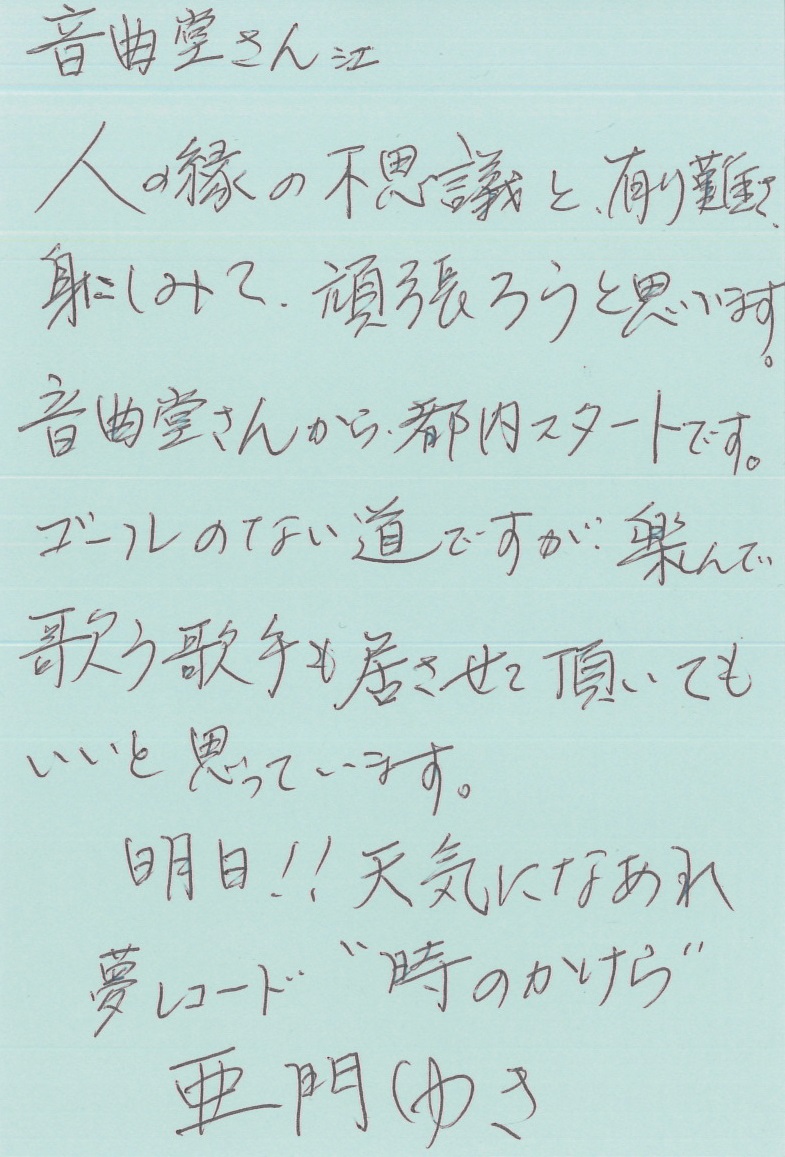 音曲堂さん江
人の縁の不思議と、有り難さ、
身にしみて、頑張ろうと思います。
音曲堂さんから、都内スタートです。
ゴールのない道ですが、楽んで
歌う歌手も居させて頂いても
いいと思っています。
明日!!天気になあれ
夢レコード "時のかけら"
亜門ゆき